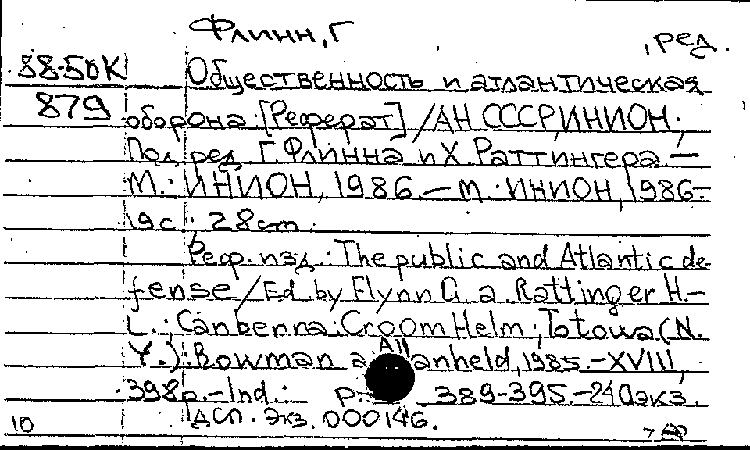 Флинн, Г , ред.
88-50К Общественность и атлантическая
879 оборона: [Реферат] / АН СССР, ИНИОН;
Под ред. Г. Флинна и Х. Раттингера. —
М.: ИНИОН, 1986. — М.: ИНИОН, 1986.-
19с.; 28cm.
Реф. изд.: The public and Atlantic de-
fense / Ed. by Flynn G. a. Rattinger H.-
L.; Canberra: Croom Helm; Totowa (N.
Y.): Rowman a. Allanheld, 1985.-XVIII,
398p.-Ind.: p. 389-395.-240экз.
ДСП. Экз. 000146.
10